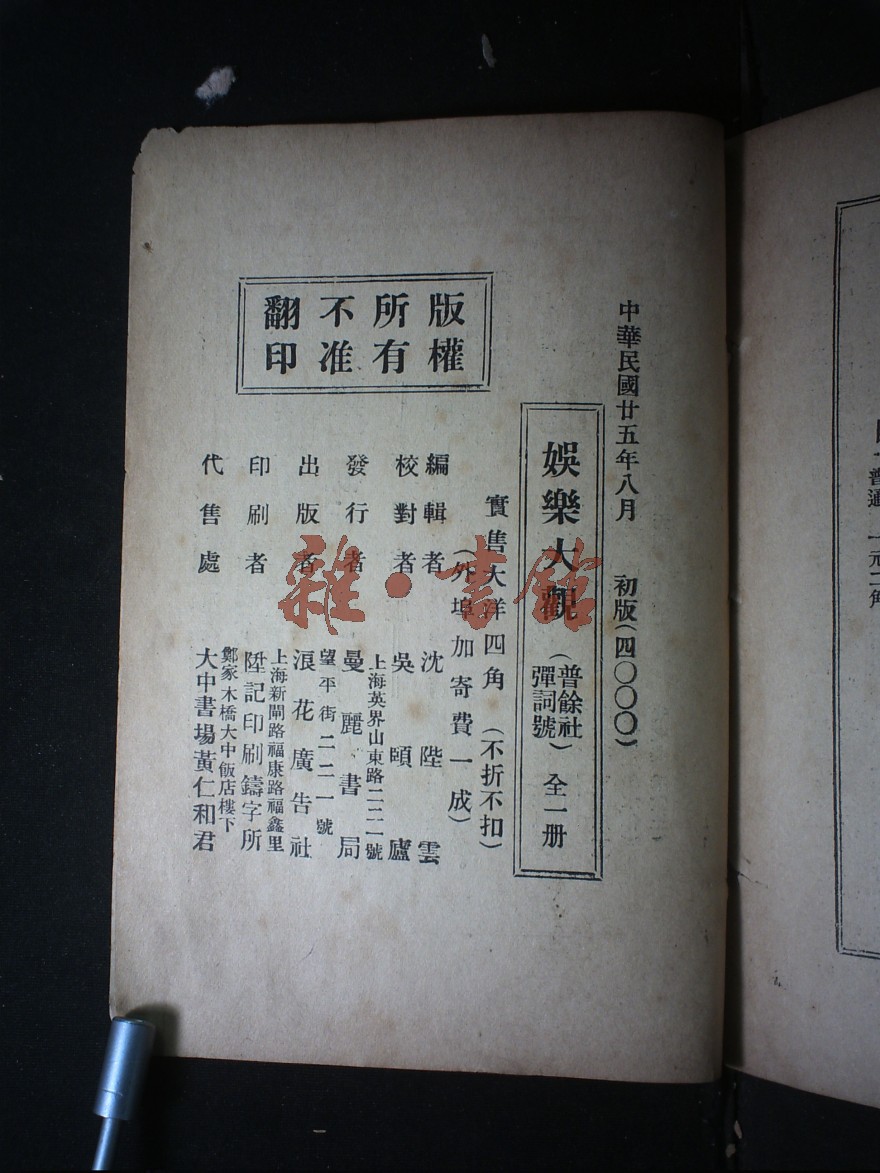 中華民國廿五年八月　初版(四〇〇〇)
娛樂大觀（普餘社彈詞號）全一册
實售大洋四角（不折不扣）
（外埠加寄費一成）
編輯者　沈陛雲
校對者　吳頤廬
上海英界山東路二二一號
發行者　曼麗書局
望平街二二一號
出版者　浪花廣告社
上海新閘路福康路福鑫里
印刷者　陞記印刷鑄字所
鄭家木橋大中飯店樓下
代售處　大中書場黃仁和君
版權所有不准翻印
雜·書館
普通　一元二角